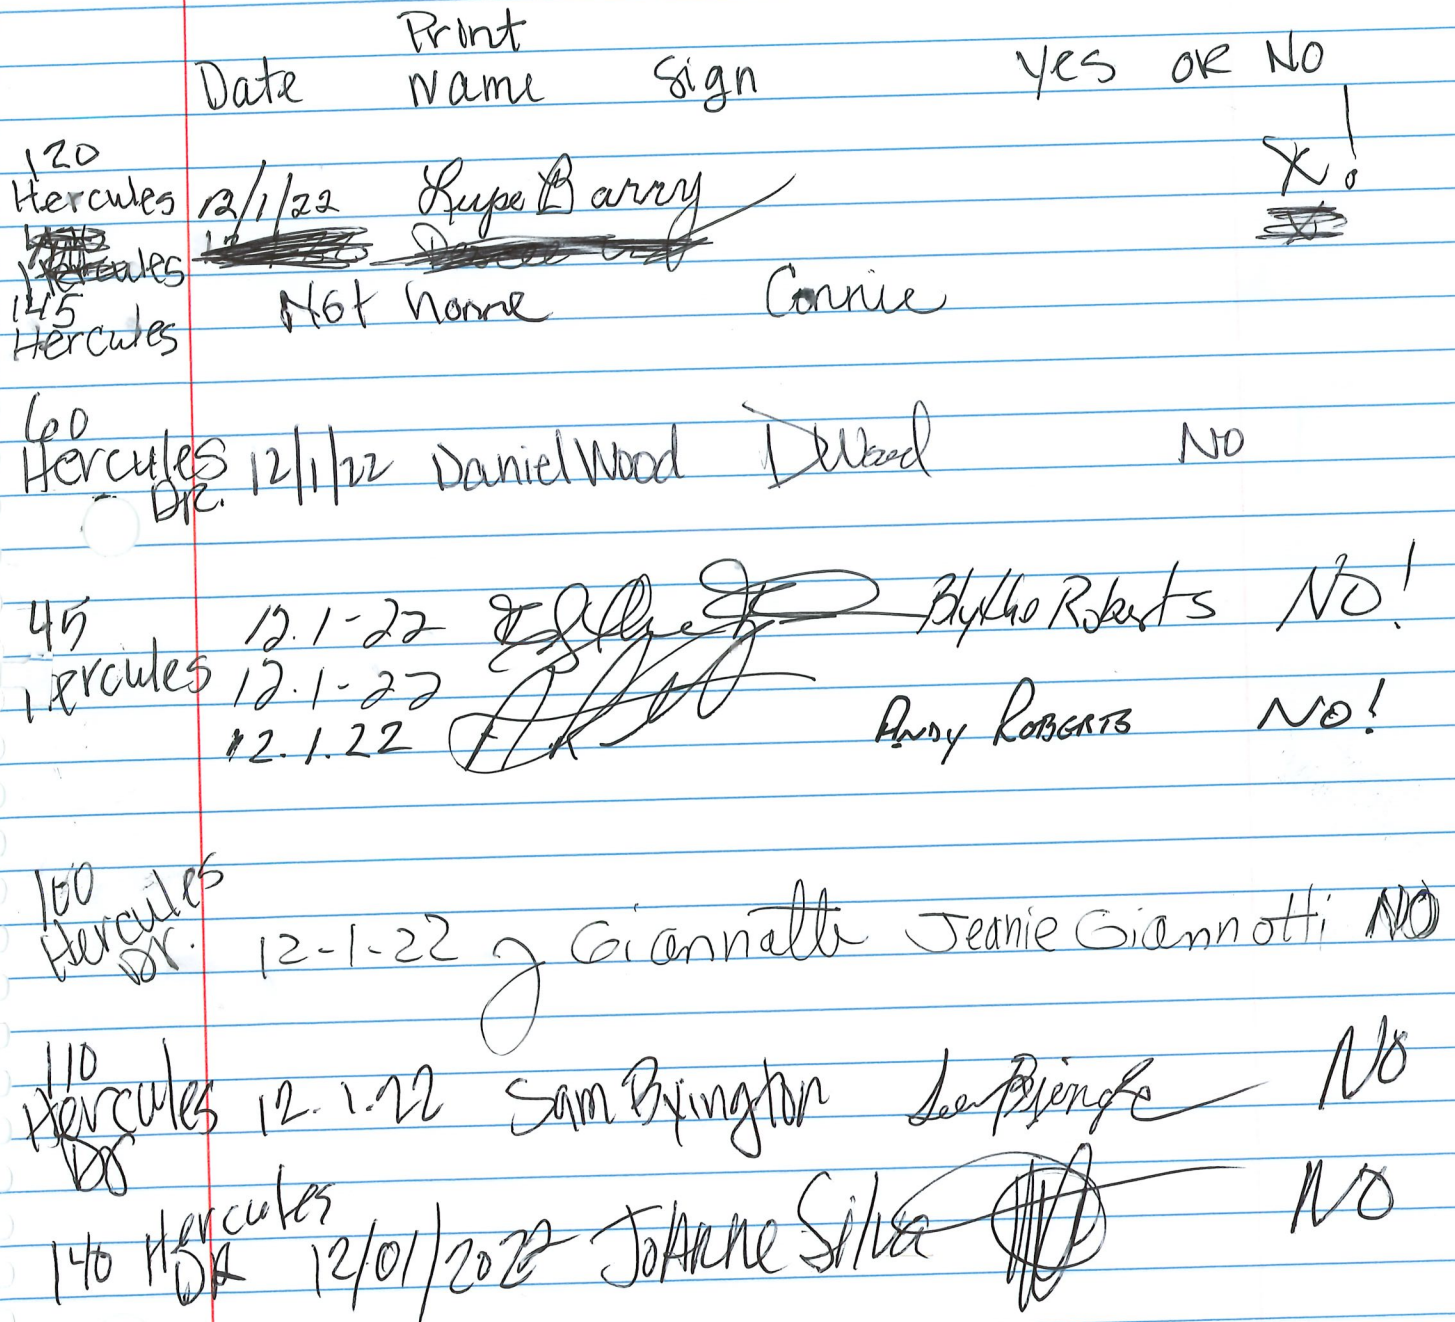 Print
Date Name Sign Yes OR No
120
Hercules 12/1/22 Lupe Barry X!
Hercules
145 Not home Connie
Hercules
60
Hercules 12/1/22 Daniel Wood DWood NO
DR.
45 12.1-22 Blythe Roberts NO!
Hercules 12.1-22
12.1.22 ANDY ROBERTS NO!
100
Hercules
Dr. 12-1-22 J Giannotti Jeanie Giannotti NO
110
Hercules 12.1.22 Sam Byington NO
Dr
140 Hercules
DR 12/01/2022 JoAnne Silva NO